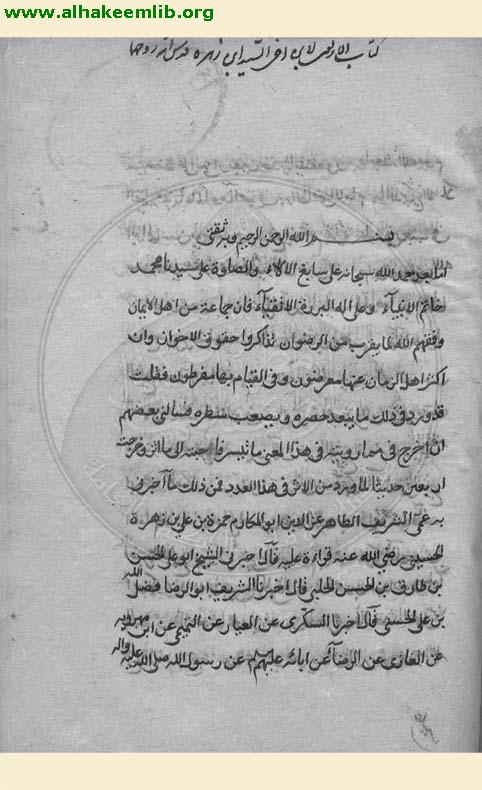 www.alhakeemlib.org
كتاب الاربعين لابن اخى السيد ابن زهره قدس الله روحهما
بسم الله الرحمن الرحيم وبه ثقتى
اما بعد حمد الله سبحانه على سابغ الالاء والصلوة على سيدنا محمد
خاتم الانبياء وعلى اله البررة الاتقياء فان جماعة من اهل الايمان
وفقهم الله لما يقرب من الرضوان تذاكروا حقوق الاخوان وان
اكثر اهل الزمان عنها معرضون وفى القيام بها مفرطون فقلت
قد ورد فى ذلك ما يبعد حصره ويصعب سطره فسالنى بعضهم
ان اخرج فى هذا المعنى ما تيسر فاجبته الى ما اثر وخرجت
اربعين حديثا لما ورد من الاثر فى هذا العدد فمن ذلك ما اخبرنى
به عمى الشريف الطاهر عز الدين ابو المكارم حمزة بن على بن زهرة
الحسينى رضي الله عنه قراءة عليه قال اخبرنى الشيخ ابو على الحسن
بن طارق بن الحسن الحلبى قال اخبرنا الشريف ابو الرضا فضل الله
بن على الحسنى قال اخبرنا السكرى عن العيار عن التميمى عن ابن مهرويه
عن الغازى عن الرضا عن ابائه عليهم عن رسول الله صلى الله عليه واله